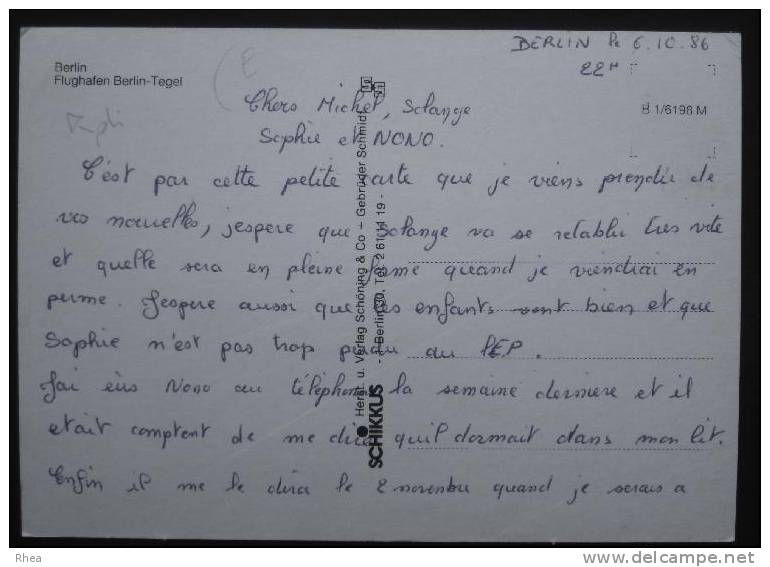 BERLIN le 6.10.86
22H
Berlin
Flughafen Berlin-Tegel
B 1/6198 M
Chers Michel, Solange
Sophie et NONO.
C'est par cette petite carte que je viens prendre de
vos nouvelles, j'espere que Solange va se retablir tres vite
et quelle sera en pleine forme quand je viendrai en
perme. J'espere aussi que les enfants vont bien et que
Sophie n'est pas trop perdu au LEP.
J'ai eus Nono au téléphone la semaine derniere et il
etait comptent de me dire qu'il dormait dans mon lit.
Enfin il me le dira le 2 novembre quand je serais a
SCHIKKUS
Herst. u. Verlag Schöning & Co - Gebrüder Schmidt
Rhea
www.delcampe.net